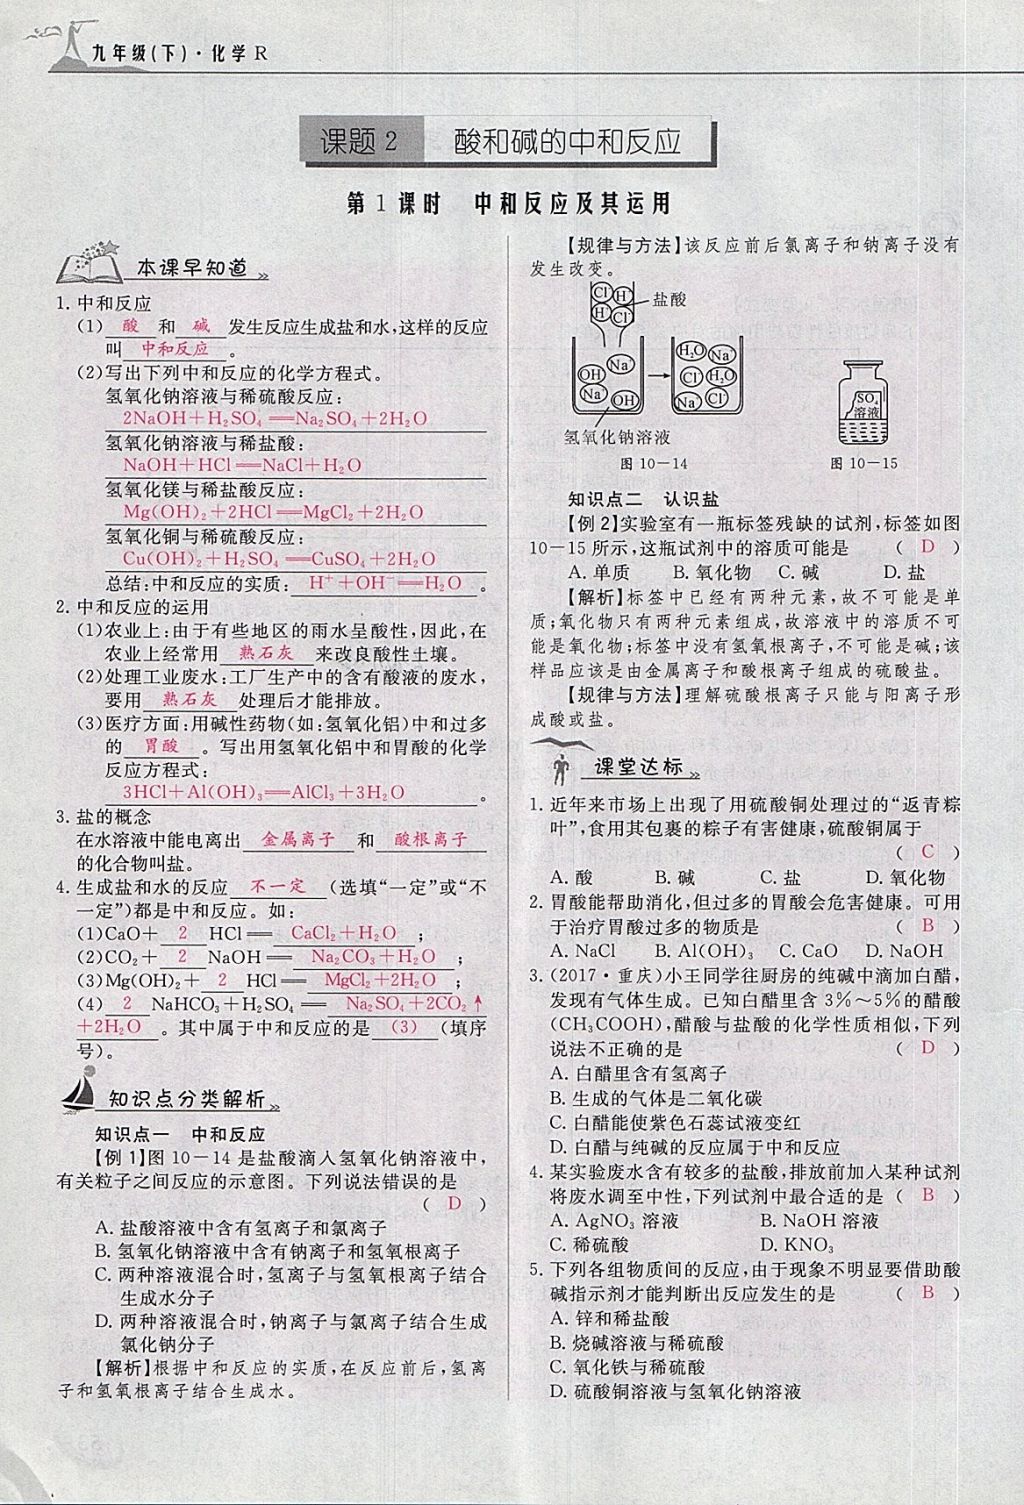 九年级(下)·化学 R
课题 2 酸和碱的中和反应
第 1 课时 中和反应及其运用
本课早知道
1. 中和反应
(1) 酸 和 碱 发生反应生成盐和水,这样的反应
叫 中和反应 。
(2)写出下列中和反应的化学方程式。
氢氧化钠溶液与稀硫酸反应:
2NaOH+H₂SO₄══Na₂SO₄+2H₂O
氢氧化钠溶液与稀盐酸:
NaOH+HCl══NaCl+H₂O
氢氧化镁与稀盐酸反应:
Mg(OH)₂+2HCl══MgCl₂+2H₂O
氢氧化铜与稀硫酸反应:
Cu(OH)₂+H₂SO₄══CuSO₄+2H₂O
总结:中和反应的实质: H⁺+OH⁻══H₂O 。
2. 中和反应的运用
(1)农业上:由于有些地区的雨水呈酸性,因此,在
农业上经常用 熟石灰 来改良酸性土壤。
(2)处理工业废水:工厂生产中的含有酸液的废水,
要用 熟石灰 处理后才能排放。
(3)医疗方面:用碱性药物(如:氢氧化铝)中和过多
的 胃酸 。写出用氢氧化铝中和胃酸的化学
反应方程式:
3HCl+Al(OH)₃══AlCl₃+3H₂O 。
3. 盐的概念
在水溶液中能电离出 金属离子 和 酸根离子
的化合物叫盐。
4. 生成盐和水的反应 不一定 (选填“一定”或“不
一定”)都是中和反应。如:
(1)CaO+ 2 HCl══ CaCl₂+H₂O ;
(2)CO₂+ 2 NaOH══ Na₂CO₃+H₂O ;
(3)Mg(OH)₂+ 2 HCl══ MgCl₂+2H₂O ;
(4) 2 NaHCO₃+H₂SO₄══ Na₂SO₄+2CO₂↑
+2H₂O 。其中属于中和反应的是 (3) (填序
号)。
知识点分类解析
知识点一 中和反应
【例 1】图 10-14 是盐酸滴入氢氧化钠溶液中,
有关粒子之间反应的示意图。下列说法错误的是
( D )
A. 盐酸溶液中含有氢离子和氯离子
B. 氢氧化钠溶液中含有钠离子和氢氧根离子
C. 两种溶液混合时,氢离子与氢氧根离子结合
生成水分子
D. 两种溶液混合时,钠离子与氯离子结合生成
氯化钠分子
【解析】根据中和反应的实质,在反应前后,氢离
子和氢氧根离子结合生成水。
【规律与方法】该反应前后氯离子和钠离子没有
发生改变。
Cl⁻ H⁺
H⁺ Cl⁻
盐酸
Na⁺
OH⁻
Na⁺ OH⁻
H₂O Na⁺
Cl⁻ H₂O
Na⁺ Cl⁻
氢氧化钠溶液
SO₄
溶液
图 10-14 图 10-15
知识点二 认识盐
【例 2】实验室有一瓶标签残缺的试剂,标签如图
10-15 所示,这瓶试剂中的溶质可能是 ( D )
A. 单质 B. 氧化物 C. 碱 D. 盐
【解析】标签中已经有两种元素,故不可能是单
质;氧化物只有两种元素组成,故溶液中的溶质不可
能是氧化物;标签中没有氢氧根离子,不可能是碱;该
样品应该是由金属离子和酸根离子组成的硫酸盐。
【规律与方法】理解硫酸根离子只能与阳离子形
成酸或盐。
课堂达标
1. 近年来市场上出现了用硫酸铜处理过的“返青粽
叶”,食用其包裹的粽子有害健康,硫酸铜属于
( C )
A. 酸 B. 碱 C. 盐 D. 氧化物
2. 胃酸能帮助消化,但过多的胃酸会危害健康。可用
于治疗胃酸过多的物质是 ( B )
A. NaCl B. Al(OH)₃ C. CaO D. NaOH
3. (2017·重庆)小王同学往厨房的纯碱中滴加白醋,
发现有气体生成。已知白醋里含 3%～5%的醋酸
(CH₃COOH),醋酸与盐酸的化学性质相似,下列
说法不正确的是 ( D )
A. 白醋里含有氢离子
B. 生成的气体是二氧化碳
C. 白醋能使紫色石蕊试液变红
D. 白醋与纯碱的反应属于中和反应
4. 某实验废水含有较多的盐酸,排放前加入某种试剂
将废水调至中性,下列试剂中最合适的是 ( B )
A. AgNO₃ 溶液 B. NaOH 溶液
C. 稀硫酸 D. KNO₃
5. 下列各组物质间的反应,由于现象不明显要借助酸
碱指示剂才能判断出反应发生的是 ( B )
A. 锌和稀盐酸
B. 烧碱溶液与稀硫酸
C. 氧化铁与稀硫酸
D. 硫酸铜溶液与氢氧化钠溶液